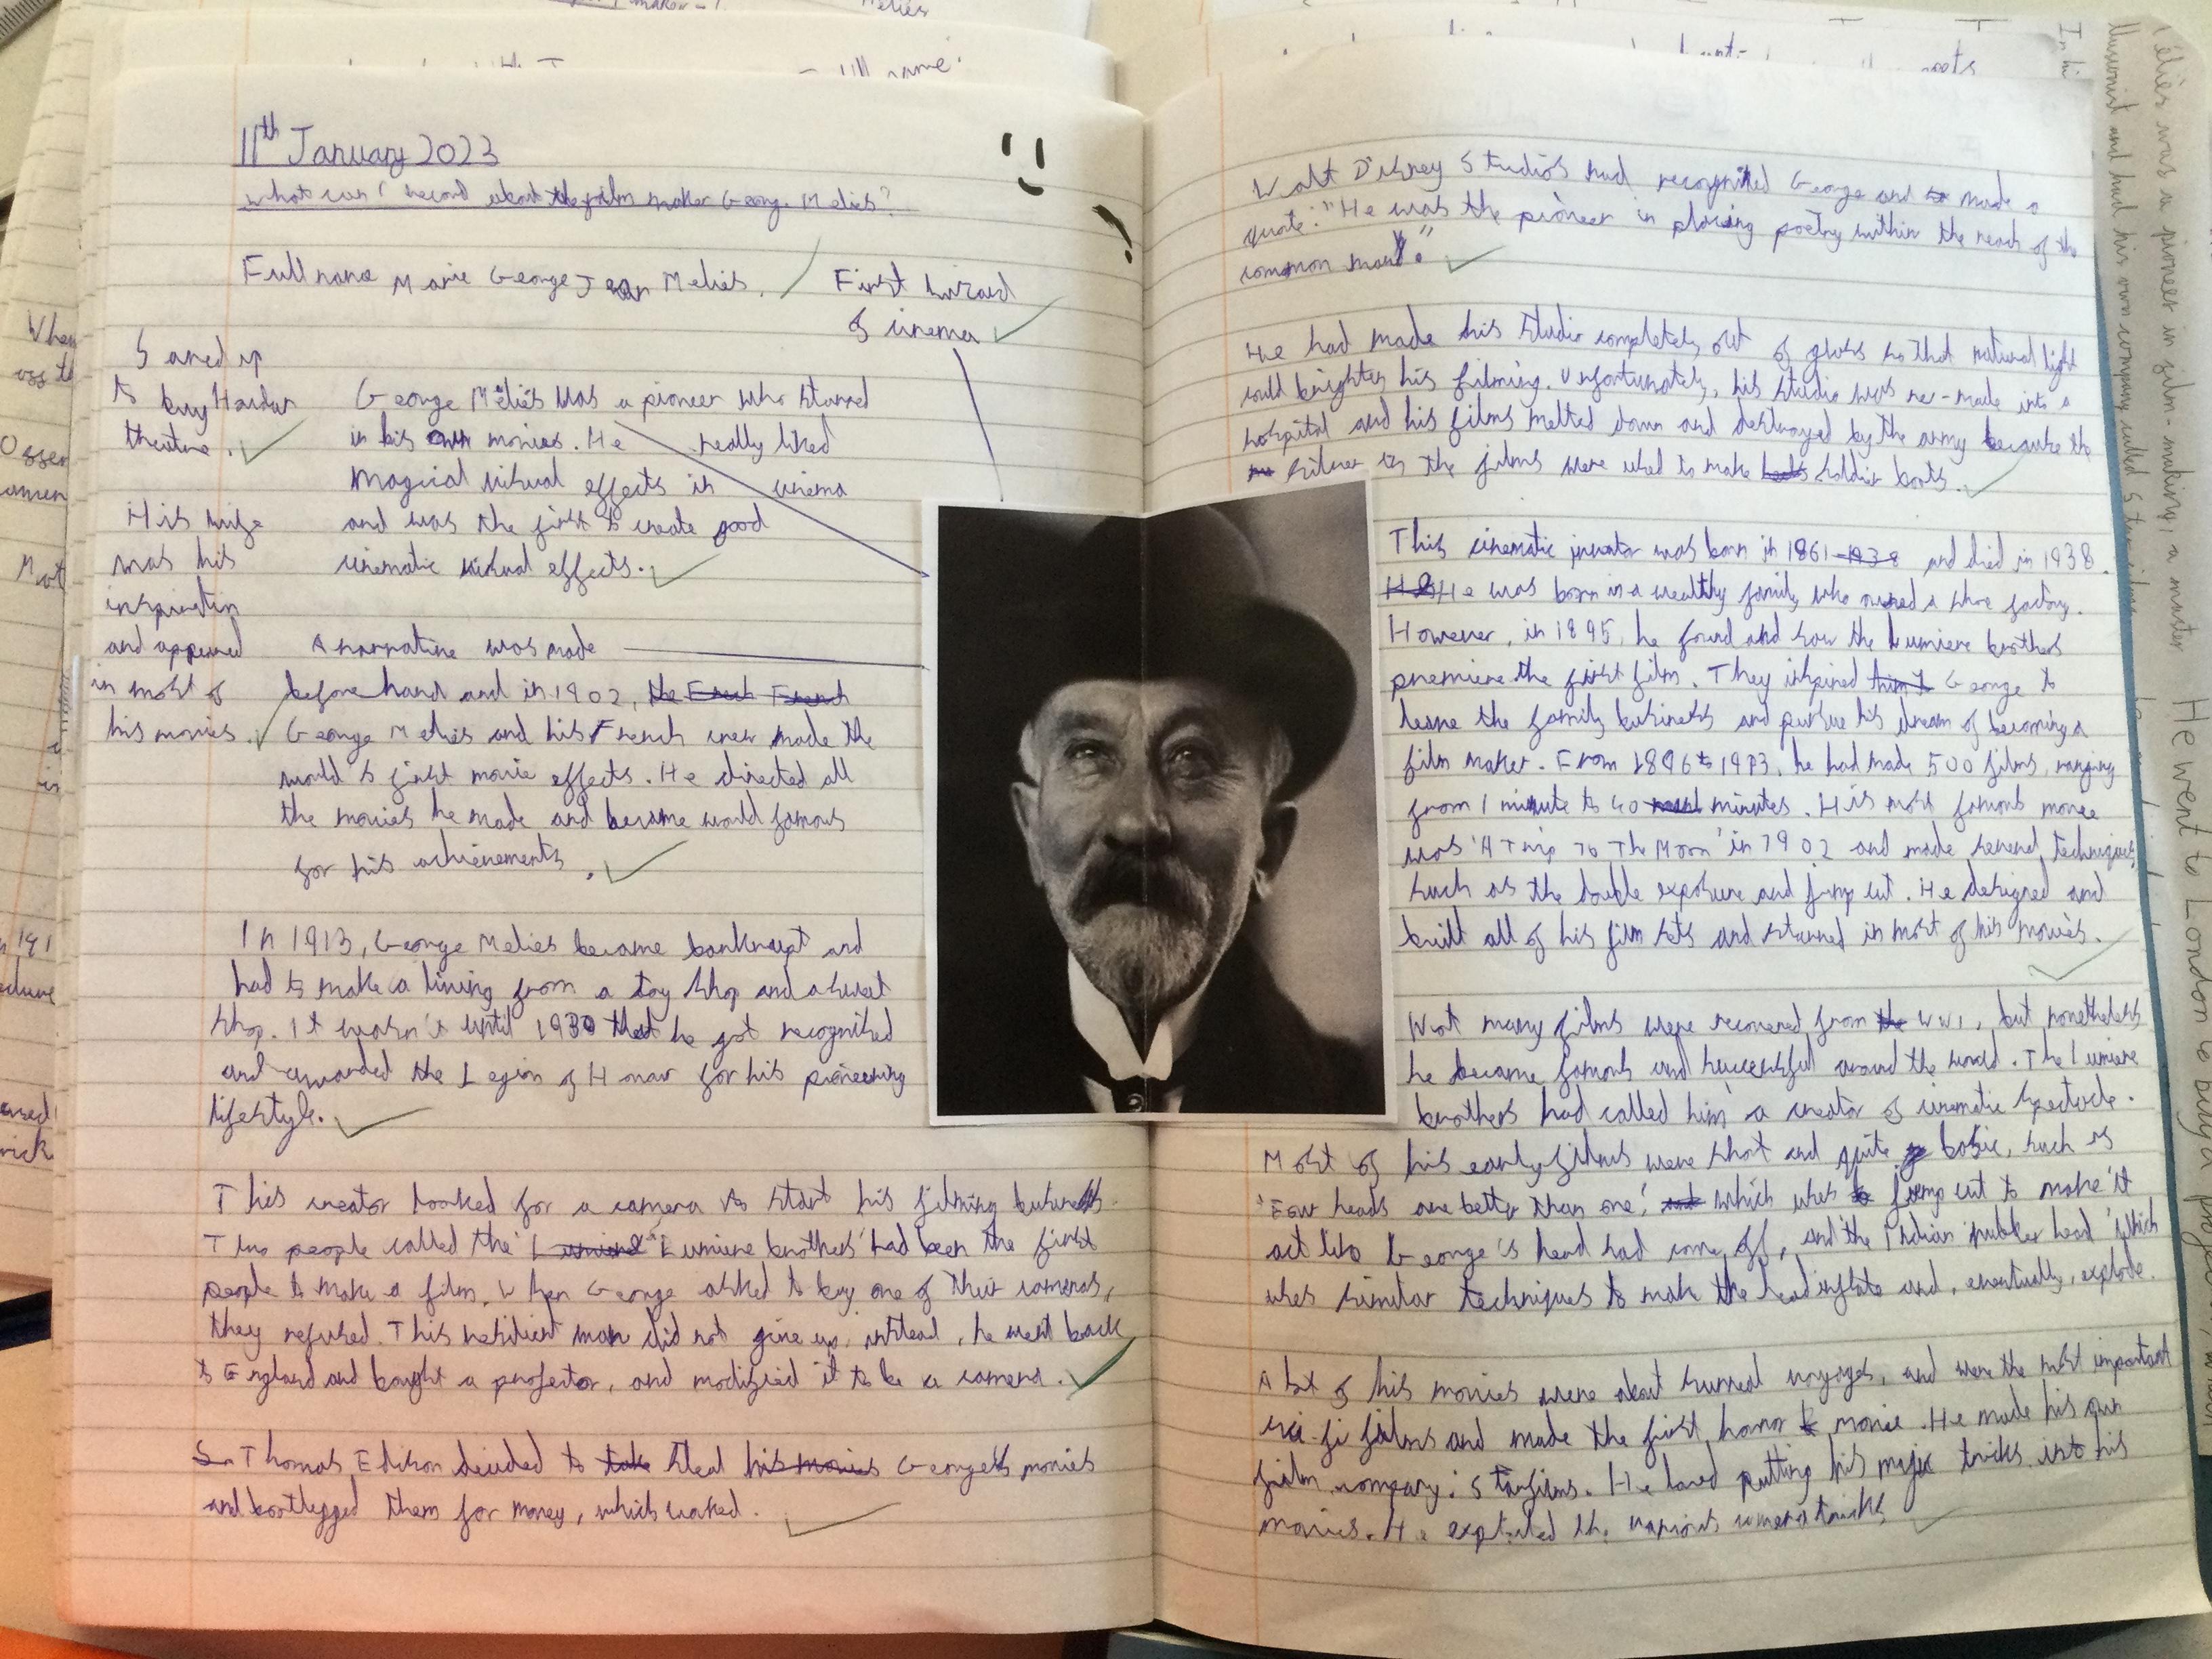 11th January 2023
What can I record about the film maker George Melies?
Full name Marie George Jean Melies.
First wizard
of cinema
Saved up
to buy Houdin
theatre.
His wife
was his
inspiration
and appeared
in most of
his movies.
George Méliès was a pioneer who starred
in his own movies. He really liked
magical visual effects in cinema
and was the first to create good
cinematic visual effects.
A narrative was made
before hand and in 1902, he French
George Melies and his French crew made the
world's first movie effects. He directed all
the movies he made and became world famous
for his achievements.
In 1913, George Melies became bankrupt and
had to make a living from a toy shop and a sweet
shop. It wasn't until 1930 that he got recognised
and awarded the Legion of Honor for his pioneering
lifestyle.
This creator looked for a camera to start his filming business.
Two people called the 'Lumiere brothers' had been the first
people to make a film. When George asked to buy one of their cameras,
they refused. This resilient man did not give up, instead, he went back
to England and bought a projector, and modified it to be a camera.
So Thomas Edison decided to take steal his movies George's movies
and bootlegged them for money, which worked.
Walt Disney Studios had recognised George and made a
quote: "He was the pioneer in placing poetry within the reach of the
common man".
He had made his studio completely out of glass so that natural light
could brighten his filming. Unfortunately, his studio was re-made into a
hospital and his films melted down and destroyed by the army because the
silver in the films were used to make soldier boots.
This cinematic inventor was born in 1861-1938 and died in 1938.
He was born in a wealthy family who owned a shoe factory.
However, in 1895, he found and saw the Lumiere brothers
premiere the first film. They inspired him to George to
leave the family business and pursue his dream of becoming a
film maker. From 1896 to 1913, he had made 500 films, ranging
from 1 minute to 40 minutes. His most famous movee
was 'A Trip To The Moon' in 1902 and made several techniques,
such as the double exposure and jump cut. He designed and
built all of his film sets and starred in most of his movies.
Not many films were recovered from the WW1, but nonetheless
he became famous and successful around the world. The Lumiere
brothers had called him a creator of cinematic spectacle.
Most of his early films were short and quite basic, such as
'Four heads are better than one', and which uses jump cut to make it
act like George's head had come off, and the 'Indian rubber head' which
uses similar techniques to make the head inflate and, eventually, explode.
A lot of his movies were about surreal voyages, and were the most important
sci-fi films and made the first horror movie. He made his own
film company: Starfilms. He loved putting his magic tricks into his
movies. He exploited the various camera tricks
Méliès was a pioneer in film-making, a master
illusionist and had his own company called Starfilms
He went to London to buy a